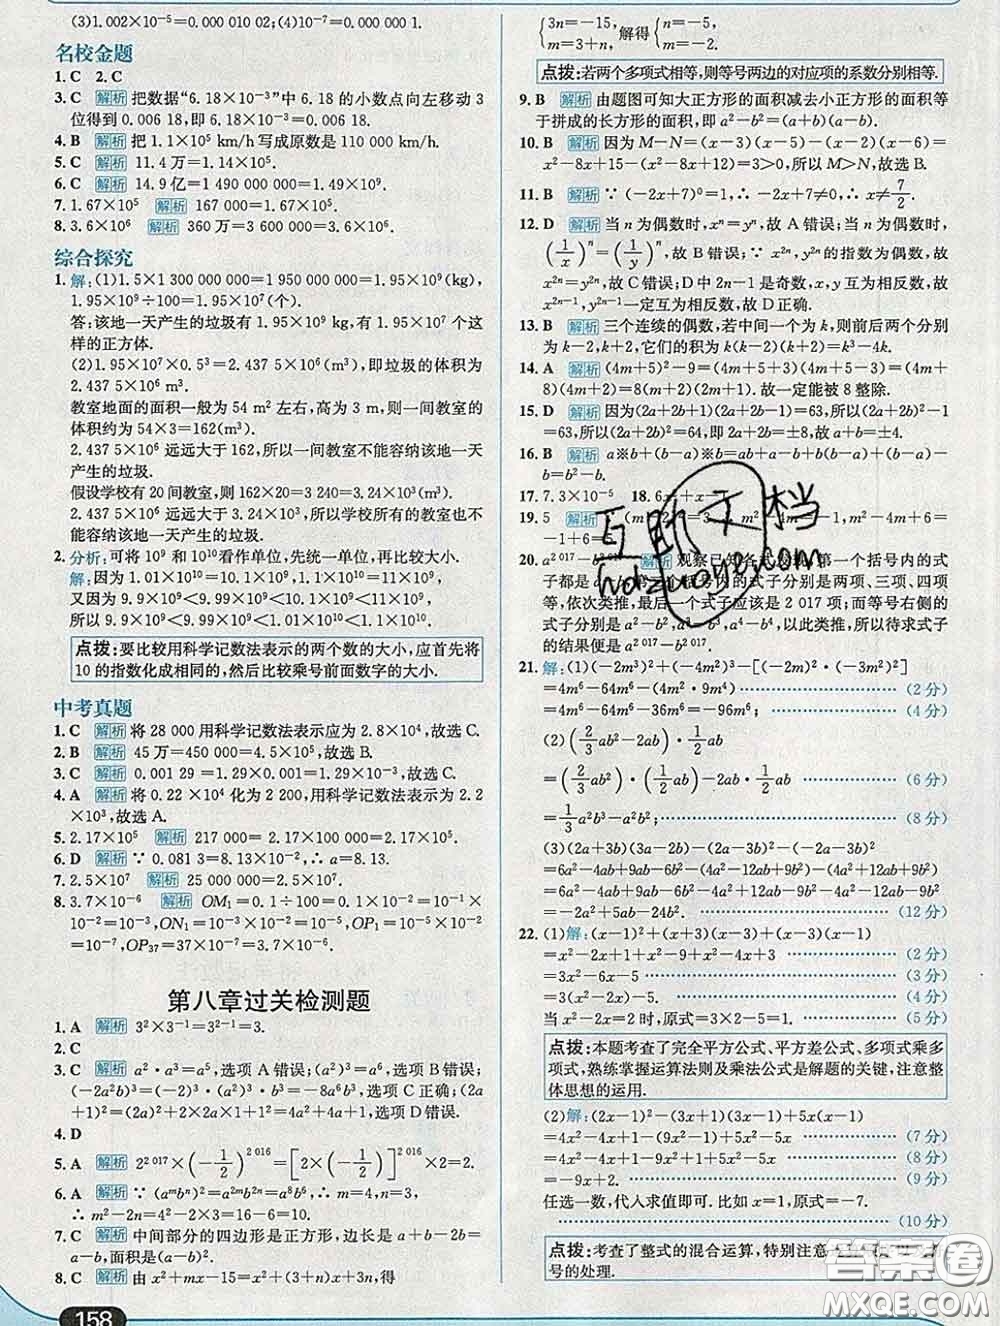 (3)1.002×10⁻⁵=0.000 010 02;(4)10⁻⁷=0.000 000 1.
名校金题
1. C 2. C
3. C 解析 把数据“6.18×10⁻³”中 6.18 的小数点向左移动 3
位得到 0.006 18,即 6.18×10⁻³=0.006 18.
4. B 解析 把 1.1×10⁵ km/h 写成原数是 110 000 km/h.
5. C 解析 11.4 万=1.14×10⁵.
6. C 解析 14.9 亿=1 490 000 000=1.49×10⁹.
7. 1.67×10⁵ 解析 167 000=1.67×10⁵.
8. 3.6×10⁶ 解析 360 万=3 600 000=3.6×10⁶.
综合探究
1. 解:(1)1.5×1 300 000 000=1 950 000 000=1.95×10⁹(kg),
1.95×10⁹÷100=1.95×10⁷(个).
答:该地一天产生的垃圾有 1.95×10⁹ kg,有 1.95×10⁷ 个这
样的正方体.
(2)1.95×10⁷×0.5³=2.437 5×10⁶(m³),即垃圾的体积为
2.437 5×10⁶ m³.
教室地面的面积一般为 54 m² 左右,高为 3 m,则一间教室的
体积约为 54×3=162(m³).
2.437 5×10⁶ 远远大于 162,所以一间教室不能容纳该地一天
产生的垃圾.
假设学校有 20 间教室,则 162×20=3 240=3.24×10³(m³).
2.437 5×10⁶ 远远大于 3.24×10³,所以学校所有的教室也不
能容纳该地一天产生的垃圾.
2. 分析:可将 10⁹ 和 10¹⁰看作单位,先统一单位,再比较大小.
解:因为 1.01×10¹⁰=10.1×10⁹,1.1×10¹⁰=11×10⁹,
又因为 9.9×10⁹<9.99×10⁹<10.1×10⁹<11×10⁹,
所以 9.9×10⁹<9.99×10⁹<1.01×10¹⁰<1.1×10¹⁰.
点拨:要比较用科学记数法表示的两个数的大小,应首先将
10 的指数化成相同的,然后比较乘号前面数字的大小.
中考真题
1. C 解析 将 28 000 用科学记数法表示应为 2.8×10⁴,故选 C.
2. B 解析 45 万=450 000=4.5×10⁵,故选 B.
3. C 解析 0.001 29=1.29×0.001=1.29×10⁻³,故选 C.
4. A 解析 将 0.22×10⁴ 化为 2 200,用科学记数法表示为 2.2
×10³,故选 A.
5. 2.17×10⁵ 解析 217 000=2.17×100 000=2.17×10⁵.
6. D 解析 ∵ 0.081 3=8.13×10⁻²,∴ a=8.13.
7. 2.5×10⁷ 解析 25 000 000=2.5×10⁷.
8. 3.7×10⁻⁶ 解析 OM₁=0.1÷100=0.1×10⁻²=10⁻¹×
10⁻²=10⁻³,ON₁=10⁻³×10⁻²=10⁻⁵,OP₁=10⁻⁵×10⁻²
=10⁻⁷,OP₃₇=37×10⁻⁷=3.7×10⁻⁶.
第八章过关检测题
1. A 解析 3²×3⁻¹=3²⁻¹=3.
2. C
3. C 解析 a²·a³=a⁵,选项 A 错误;(a²)³=a⁶,选项 B 错误;
(-2a²b)³=(-2)³·(a²)³·b³=-8a⁶b³,选项 C 正确;(2a
+1)²=(2a)²+2×2a×1+1²=4a²+4a+1,选项 D 错误.
4. D
5. A 解析 2²⁰¹⁷×(-1/2)²⁰¹⁶=[2×(-1/2)]²⁰¹⁶×2=2.
6. A 解析 ∵ (aᵐbⁿ)²=a²ᵐb²ⁿ=a⁸b⁶,∴ m=4,n=3,
∴ m²-2n=4²-2×3=16-6=10.
7. C 解析 中间部分的四边形是正方形,边长是 a+b-2b=
a-b,面积是(a-b)².
8. C 解析 由 x²+mx-15=(x+3)(x+n)=x²+(3+n)x+3n,得
{3n=-15, m=3+n, 解得 {n=-5, m=-2.
点拨:若两个多项式相等,则等号两边的对应项的系数分别相等.
9. B 解析 由题图可知大正方形的面积减去小正方形的面积等
于拼成的长方形的面积,即 a²-b²=(a+b)(a-b).
10. B 解析 因为 M-N=(x-3)(x-5)-(x-2)(x-6)=
x²-8x+15-(x²-8x+12)=3>0,所以 M>N,故选 B.
11. B 解析 ∵ (-2x+7)⁰=1,∴ -2x+7≠0,∴ x≠7/2.
12. D 解析 当 n 为偶数时,xⁿ=yⁿ,故 A 错误;当 n 为偶数时,
(1/x)ⁿ=(1/y)ⁿ,故 B 错误;∵ x²ⁿ,y²ⁿ的指数为偶数,故
x²ⁿ=y²ⁿ,故 C 错误;D 中 2n-1 是奇数,x,y 互为相反数,故
x²ⁿ⁻¹,y²ⁿ⁻¹一定互为相反数,故 D 正确.
13. B 解析 三个连续的偶数,若中间一个为 k,则前后两个分别
为 k-2,k+2,它们的积为 k(k-2)(k+2)=k³-4k.
14. A 解析 (4m+5)²-9=(4m+5+3)(4m+5-3)=(4m+
8)(4m+2)=8(m+2)(2m+1).故一定能被 8 整除.
15. D 解析 因为(2a+2b+1)(2a+2b-1)=63,所以(2a+2b)²-1
=63,所以(2a+2b)²=64,即 2a+2b=±8,故 a+b=±4.
16. B 解析 a※b+(b-a)※b=ab+a-b+b(b-a)+(b-a)
-b=b²-b.
17. 7.3×10⁻⁵ 18. 6x³+x-
19. 5 解析 m²-1,m²-4m+6=
-1+6=5.
20. a²⁰¹⁷-b²⁰¹⁷ 解析 观察已知各式 第一个括号内的式
子都是 括号内的式子分别是两项、三项、四项
等,依次类推,最后一个式子应该是 2 017 项;而等号右侧的
式子分别是 a²-b²,a³-b³,a⁴-b⁴,以此类推,所以待求式子
的结果便是 a²⁰¹⁷-b²⁰¹⁷.
21. 解:(1)(-2m²)³+(-4m³)²-[(-2m)²·(-3m²)²]
=4m⁶-64m⁶-(4m²·9m⁴) (2 分)
=4m⁶-64m⁶-36m⁶=-96m⁶; (4 分)
(2)(2/3ab²-2ab)·1/2ab
=(2/3ab²)·(1/2ab)-2ab·1/2ab (6 分)
=1/3a²b³-a²b²; (8 分)
(3)(2a+3b)(3a-2b)-(2a-3b)²-(2a-3b)²
=6a²-4ab+9ab-6b²-(4a²-12ab+9b²)-(4a²-12ab+9b²)
=6a²+5ab-6b²-4a²+12ab-9b²-4a²+12ab-9b²
=-2a²+5ab-24b². (12 分)
22. (1)解:(x-1)²+(x+3)(x-3)+(x-3)(x-1)
=x²-2x+1+x²-9+x²-4x+3 (2 分)
=3x²-6x-5 (3 分)
=3(x²-2x)-5. (4 分)
当 x²-2x=2 时,原式=3×2-5=1. (5 分)
点拨:本题考查了完全平方公式、平方差公式、多项式乘多
项式,熟练掌握运算法则及乘法公式是解题的关键,注意整
体思想的运用.
(2)解:(2x-1)²-(3x+1)(3x-1)+5x(x-1)
=4x²-4x+1-(9x²-1)+5x²-5x (7 分)
=4x²-4x+1-9x²+1+5x²-5x (8 分)
=-9x+2. (9 分)
任选一数,代入求值即可.比如 x=1,原式=-7.
(10 分)
点拨:考查了整式的混合运算,特别注意
号的处理.
158
互助文档
答案圈
MXQE.COM